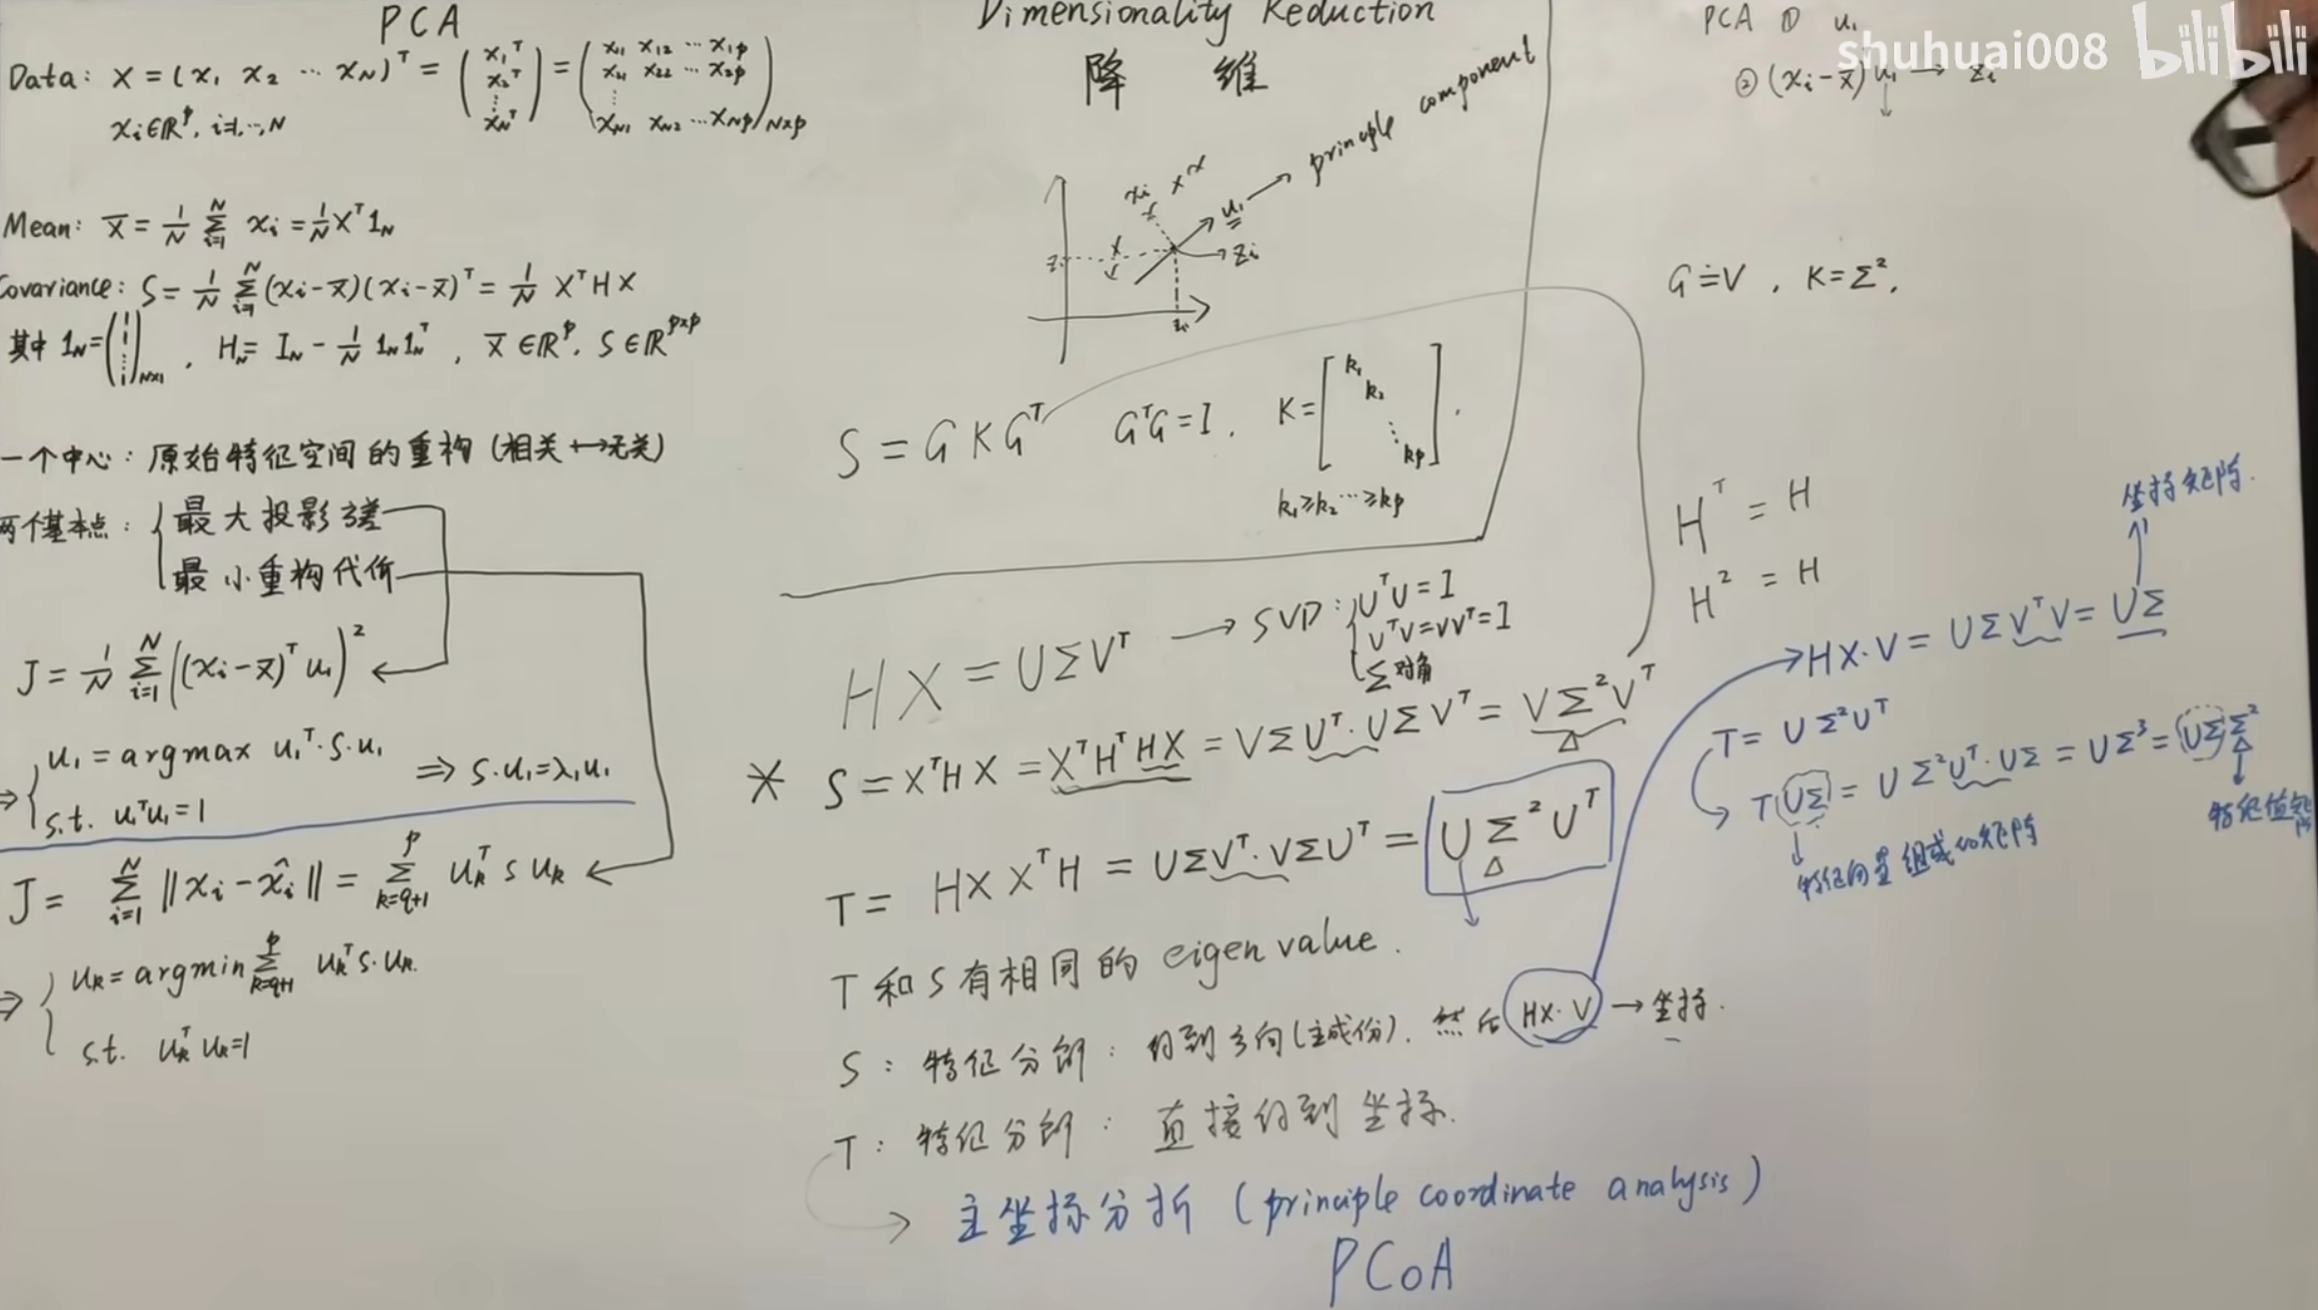 PCA
Data: X = (x₁ x₂ ⋯ x_N)ᵀ = (x₁ᵀ x₂ᵀ ⋮ x_Nᵀ) = (x₁₁ x₁₂ ⋯ x₁p x₂₁ x₂₂ ⋯ x₂p ⋮ x_N₁ x_N₂ ⋯ x_Np)_N×p
xᵢ∈ℝᵖ, i=1,⋯,N
Mean: X̄ = 1/N Σᵢ₌₁ᴺ xᵢ = 1/N Xᵀ1_N
Covariance: S = 1/N Σᵢ₌₁ᴺ (xᵢ-x̄)(xᵢ-x̄)ᵀ = 1/N XᵀHX
其中 1_N = (1 1 ⋮ 1)_N×1, H_N = I_N - 1/N 1_N1_Nᵀ, X̄∈ℝᵖ, S∈ℝᵖˣᵖ
一个中心: 原始特征空间的重构 (相关↔无关)
两个基本点: { 最大投影方差
最小重构代价
J = 1/N Σᵢ₌₁ᴺ ((xᵢ-x̄)ᵀu₁)²
⇒ { u₁ = argmax u₁ᵀ·S·u₁
s.t. u₁ᵀu₁=1
⇒ S·u₁=λ₁u₁
J = Σᵢ₌₁ᴺ ‖xᵢ-x̂ᵢ‖ = Σₖ₌q₊₁ᵖ uₖᵀ S uₖ
⇒ { uₖ = argmin Σₖ₌q₊₁ᵖ uₖᵀS·uₖ
s.t. uₖᵀuₖ=1
Dimensionality Reduction
降 维
xᵢ x x
u₁ → principle component
x
zᵢ
zᵢ
S = GKGᵀ GᵀG=I, K=[k₁ k₂ ⋱ kp].
k₁≥k₂⋯≥kp
HX = UΣVᵀ → SVD: { UᵀU=I
VᵀV=VVᵀ=I
Σ对角
* S = XᵀHX = XᵀHᵀHX = VΣUᵀ·UΣVᵀ = VΣ²Vᵀ
Δ
T = HXXᵀH = UΣVᵀ·VΣUᵀ = UΣ²Uᵀ
Δ
T和S有相同的eigen value.
S: 特征分解: 得到方向(主成份), 然后 HX·V → 坐标.
T: 特征分解: 直接得到坐标.
→ 主坐标分析 (principle coordinate analysis)
PCoA
PCA ① u₁
② (xᵢ-x̄)u₁ → zᵢ
shuhuai008 bilibili
G≐V, K=Σ²,
Hᵀ = H
H² = H
坐标矩阵.
HX·V = UΣVᵀV = UΣ
T = UΣ²Uᵀ
T UΣ = UΣ²Uᵀ·UΣ = UΣ³ = UΣ Σ²
Δ
特征向量组成的矩阵
特征值矩阵